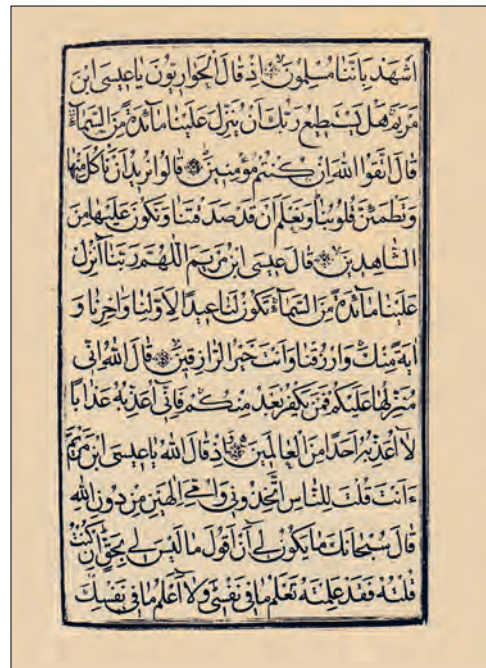 اشْهَدْ بِاَنَّنَا مُسْلِمُونَ اِذْ قَالَ الْحَوَارِيُّونَ يَا عِيسَى ابْنَ
مَرْيَمَ هَلْ يَسْتَطِيعُ رَبُّكَ اَنْ يُنَزِّلَ عَلَيْنَا مَآئِدَةً مِنَ السَّمَآءِ
قَالَ اتَّقُوا اللهَ اِنْ كُنْتُمْ مُؤْمِنِينَ قَالُوا نُرِيدُ اَنْ نَاْكُلَ مِنْهَا
وَتَطْمَئِنَّ قُلُوبُنَا وَنَعْلَمَ اَنْ قَدْ صَدَقْتَنَا وَنَكُونَ عَلَيْهَا مِنَ
الشَّاهِدِينَ قَالَ عِيسَى ابْنُ مَرْيَمَ اللّٰهُمَّ رَبَّنَا اَنْزِلْ
عَلَيْنَا مَآئِدَةً مِنَ السَّمَآءِ تَكُونُ لَنَا عِيدًا لِاَوَّلِنَا وَاٰخِرِنَا وَ
اٰيَةً مِنْكَ وَارْزُقْنَا وَاَنْتَ خَيْرُ الرَّازِقِينَ قَالَ اللهُ اِنِّى
مُنَزِّلُهَا عَلَيْكُمْ فَمَنْ يَكْفُرْ بَعْدُ مِنْكُمْ فَاِنِّى اُعَذِّبُهُ عَذَابًا
لَا اُعَذِّبُهُ اَحَدًا مِنَ الْعَالَمِينَ اِذْ قَالَ اللهُ يَا عِيسَى ابْنَ مَرْيَمَ
ءَاَنْتَ قُلْتَ لِلنَّاسِ اتَّخِذُونِى وَاُمِّىَ اِلٰهَيْنِ مِنْ دُونِ اللهِ
قَالَ سُبْحَانَكَ مَا يَكُونُ لِى اَنْ اَقُولَ مَا لَيْسَ لِى بِحَقٍّ اِنْ كُنْتُ
قُلْتُهُ فَقَدْ عَلِمْتَهُ تَعْلَمُ مَا فِى نَفْسِى وَلَا اَعْلَمُ مَا فِى نَفْسِكَ